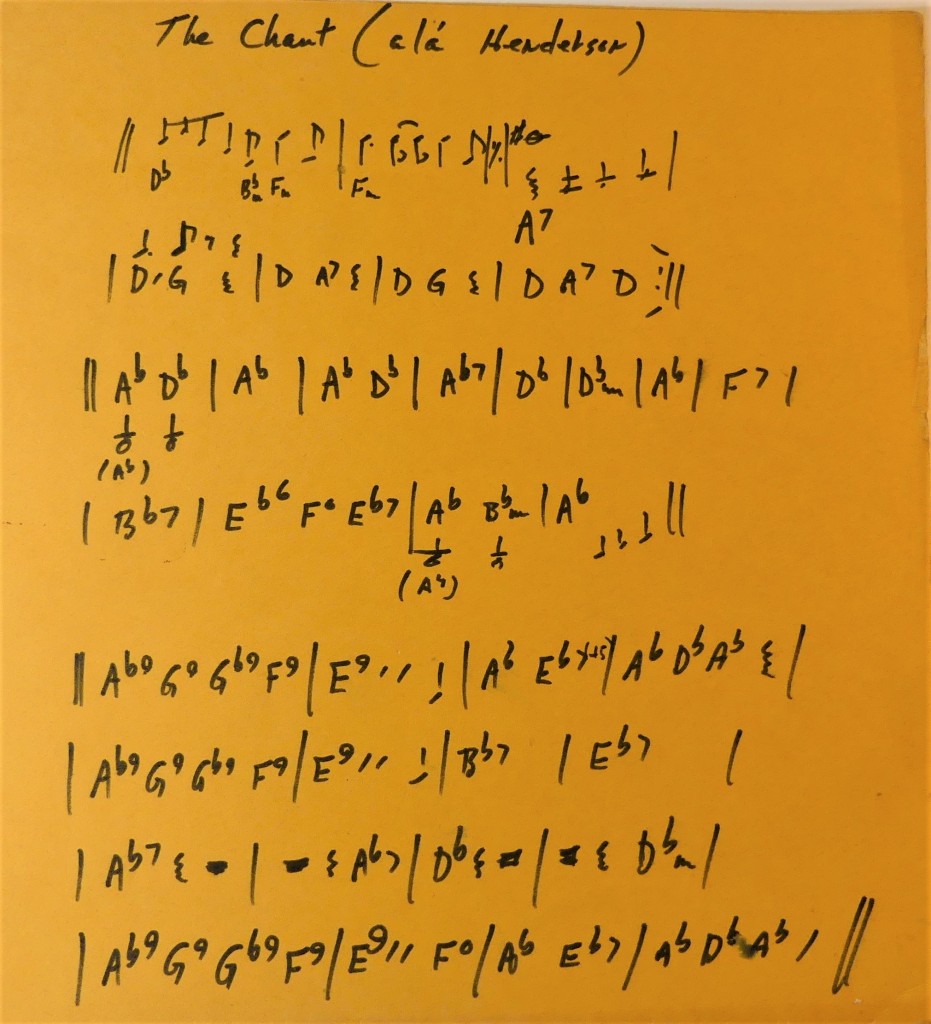 The Chant (alá Henderson)
Db Bbm Fm | Fm | A7 |
| D G | D A7 | D G | D A7 D :||
|| Ab Db | Ab | Ab Db | Ab7 | Db | Dbm | Ab | F7 |
(Ab)
| Bb7 | Eb6 F° Eb7 | Ab Bbm | Ab ||
(Ab)
|| Ab9 G9 Gb9 F9 | E9 // | Ab Eb7+5 | Ab Db Ab |
| Ab9 G9 Gb9 F9 | E9 // | Bb7 | Eb7 |
| Ab7 - | - Ab7 | Db = | = Dbm |
| Ab9 G9 Gb9 F9 | E9 // F° | Ab Eb7 | Ab Db Ab / ||